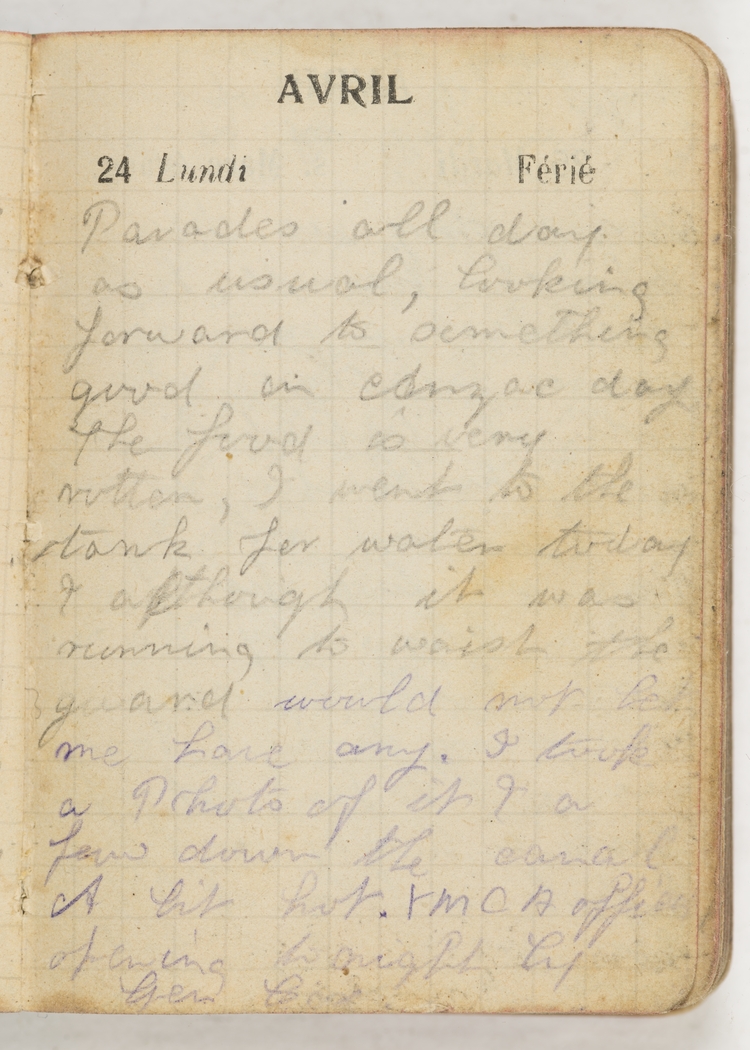 AVRIL
24 Lundi Férié
Parades all day
as usual, looking
forward to something
good on Anzac day
The food is very
rotten, I went to the
tank for water today
& although it was
running to waist the
guard would not let
me have any. I took
a Photo of it & a
few down the canal
A bit hot. YMCA office
opening tonight by
Gen